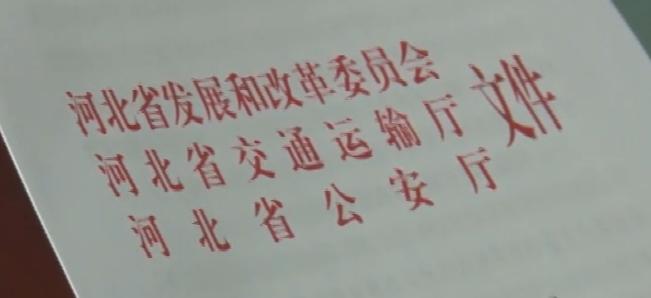 河北省发展和改革委员会
河北省交通运输厅 文件
河北省公安厅